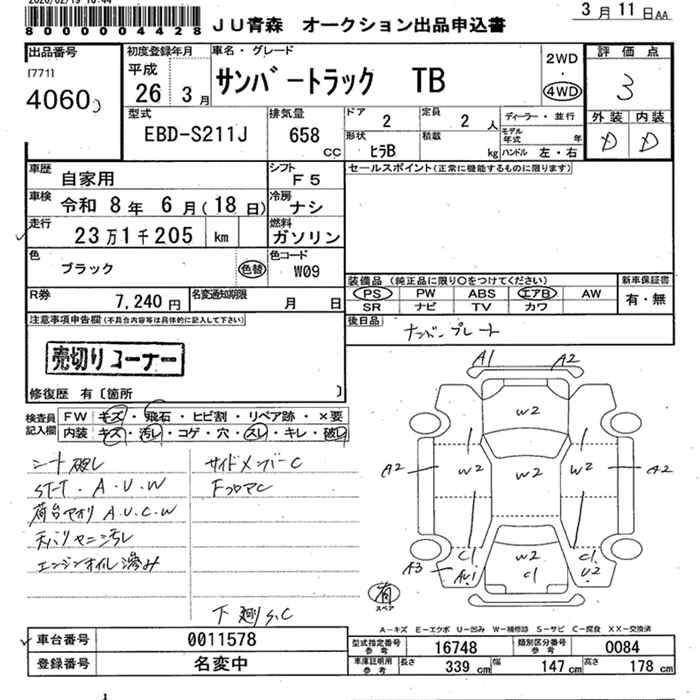 8000004428
JU青森 オークション出品申込書
3月11日AA
出品番号
[771]
4060
初度登録年月
平成
26 3月
車名・グレード
サンバートラック TB
2WD
・
4WD
評価点
3
外装 内装
D D
型式
EBD-S211J
排気量
658 CC
ドア
2
定員
2 人
形状
ヒラB
積載
kg
ディーラー・並行
モデル年式 年
ハンドル 左・右
車歴
自家用
シフト
F5
セールスポイント(正常に機能するものに限ります)
車検
令和 8年 6月(18日)
冷房
ナシ
走行
23万1千205 km
燃料
ガソリン
色
ブラック
色替
色コード
W09
R券
7,240円
名変通知期限
月 日
装備品(純正品に限り○をつけてください)
PS PW ABS エアB AW
SR ナビ TV カワ
新車保証書
有・無
後日品
ナンバープレート
注意事項申告欄(不具合内容等は具体的に記入して下さい)
売切りコーナー
修復歴 有〔箇所 〕
検査員記入欄
FW キズ・飛石・ヒビ割・リペア跡・×要
内装 キズ・汚レ・コゲ・穴・スレ・キレ・破レ
シート破レ
ST-T.A.U.W
荷台アオリ A.U.C.W
天バリ ヤニ汚レ
エンジンオイル滲み
サイドメンバーC
FフロアC
下廻りS.C
A1 A2
W2
A2 W2 W2 W2 A2
A3 C1 W2 C1
AU1 C1 U2
有
スペア
A−キズ E−エクボ U−凹み W−補修跡 S−サビ C−腐食 XX−交換済
車台番号
0011578
登録番号
名変中
型式指定番号参考
16748
類別区分番号参考
0084
車庫証明用参考
長さ 339cm
幅 147cm
高さ 178cm